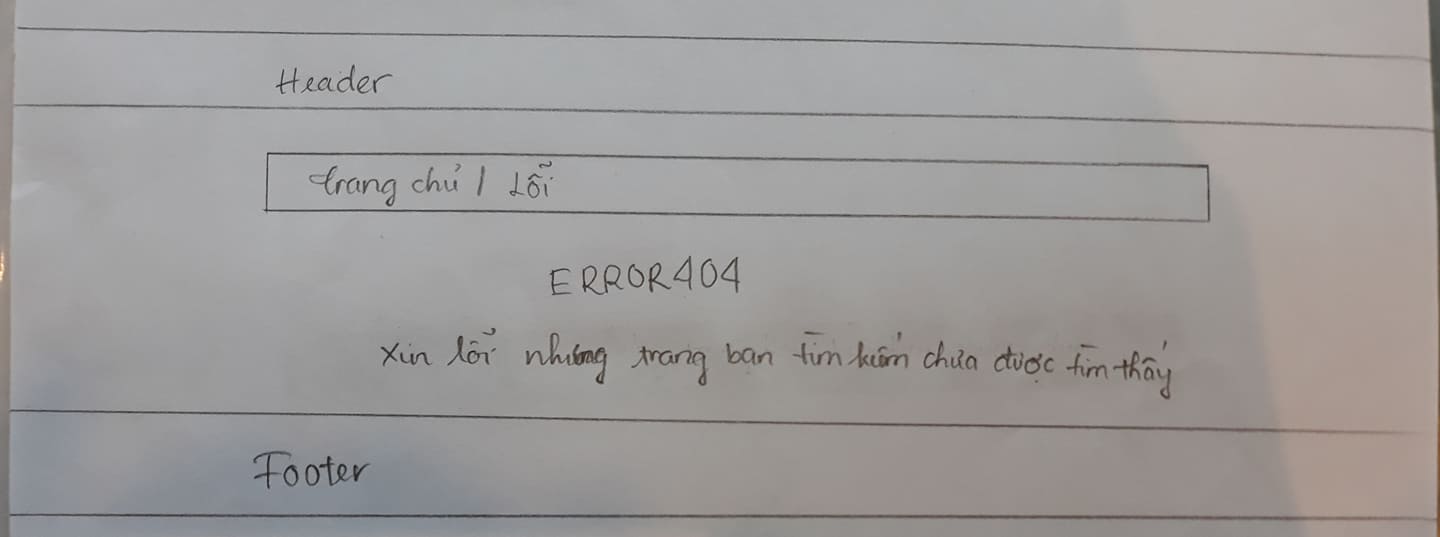 Header
trang chủ / Lỗi
ERROR404
xin lỗi nhưng trang bạn tìm kiếm chưa được tìm thấy
Footer